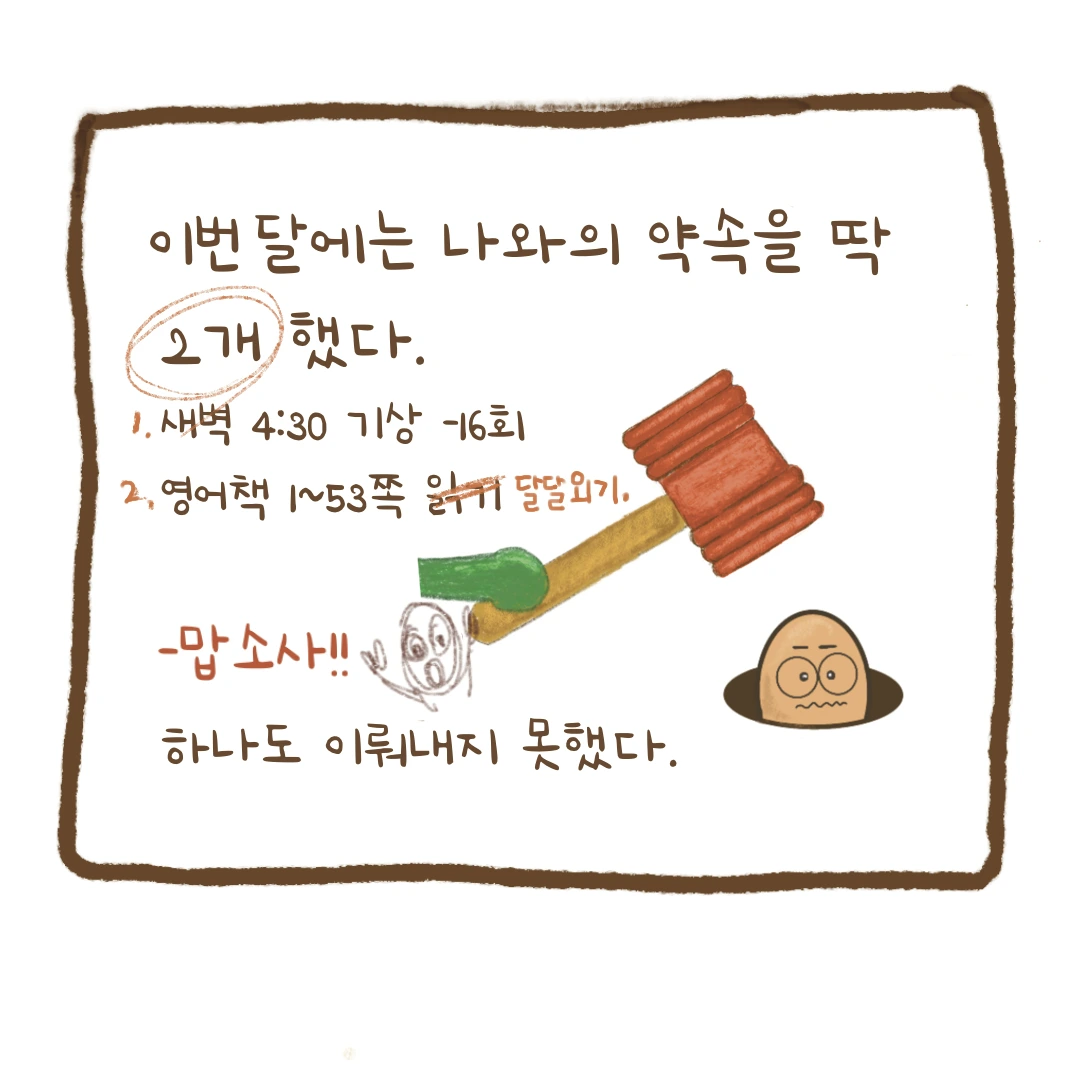 이번 달에는 나와의 약속을 딱
2개 했다.
1. 새벽 4:30 기상 -16회
2. 영어책 1~53쪽 읽기 달달외기.
-맙소사!!
하나도 이뤄내지 못했다.